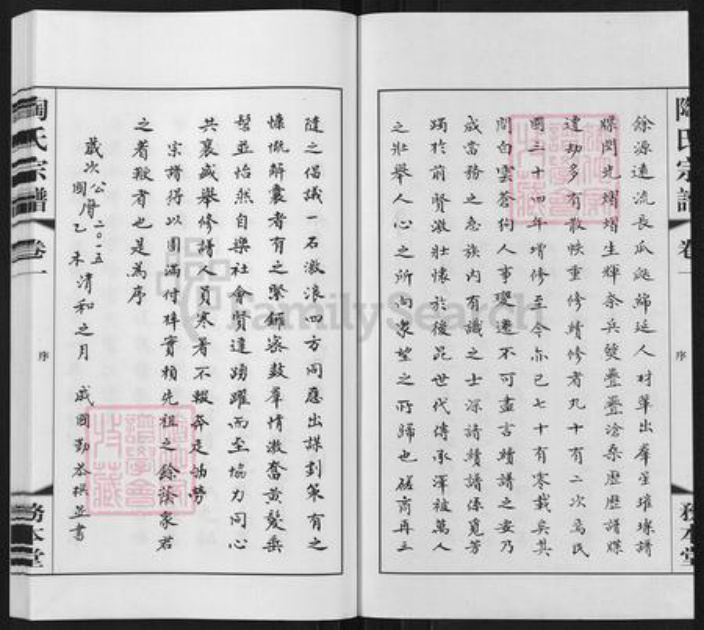 餘源遠流長瓜瓞綿延人材輩出羣星璀璨譜
牒閃光熠熠生輝奈兵燹疊疊滄桑歷歷譜牒
遭劫多有散佚重修續修者凡十有二次烏民
國三十四年增修至今亦已七十有寒載矣其
間白雲蒼狗人事變遷不可盡言續譜之要乃
成當務之急族內有識之士深諳續譜係覓芳
躅於前賢激壯懷於後昆世代傳承澤被萬人
之壯舉人心之所向衆望之所歸也磋商再三
隨之倡議一石激浪四方同應出謀劃策有之
慷慨解囊者有之緊鑼密鼓羣情激奮黃髮垂
髫並怡然自樂社會賢達踴躍而至協力同心
共襄盛舉修譜人員寒暑不輟奔走劬勞
宗譜得以圓滿付梓實賴先祖之餘蔭衆君
之者掖者也是為序
歲次公曆二〇一五
國曆乙未清和之月 戚國勤恭撰並書
陶氏宗譜 卷一 序 務本堂
陶氏宗譜 卷一 序 務本堂
FamilySearch